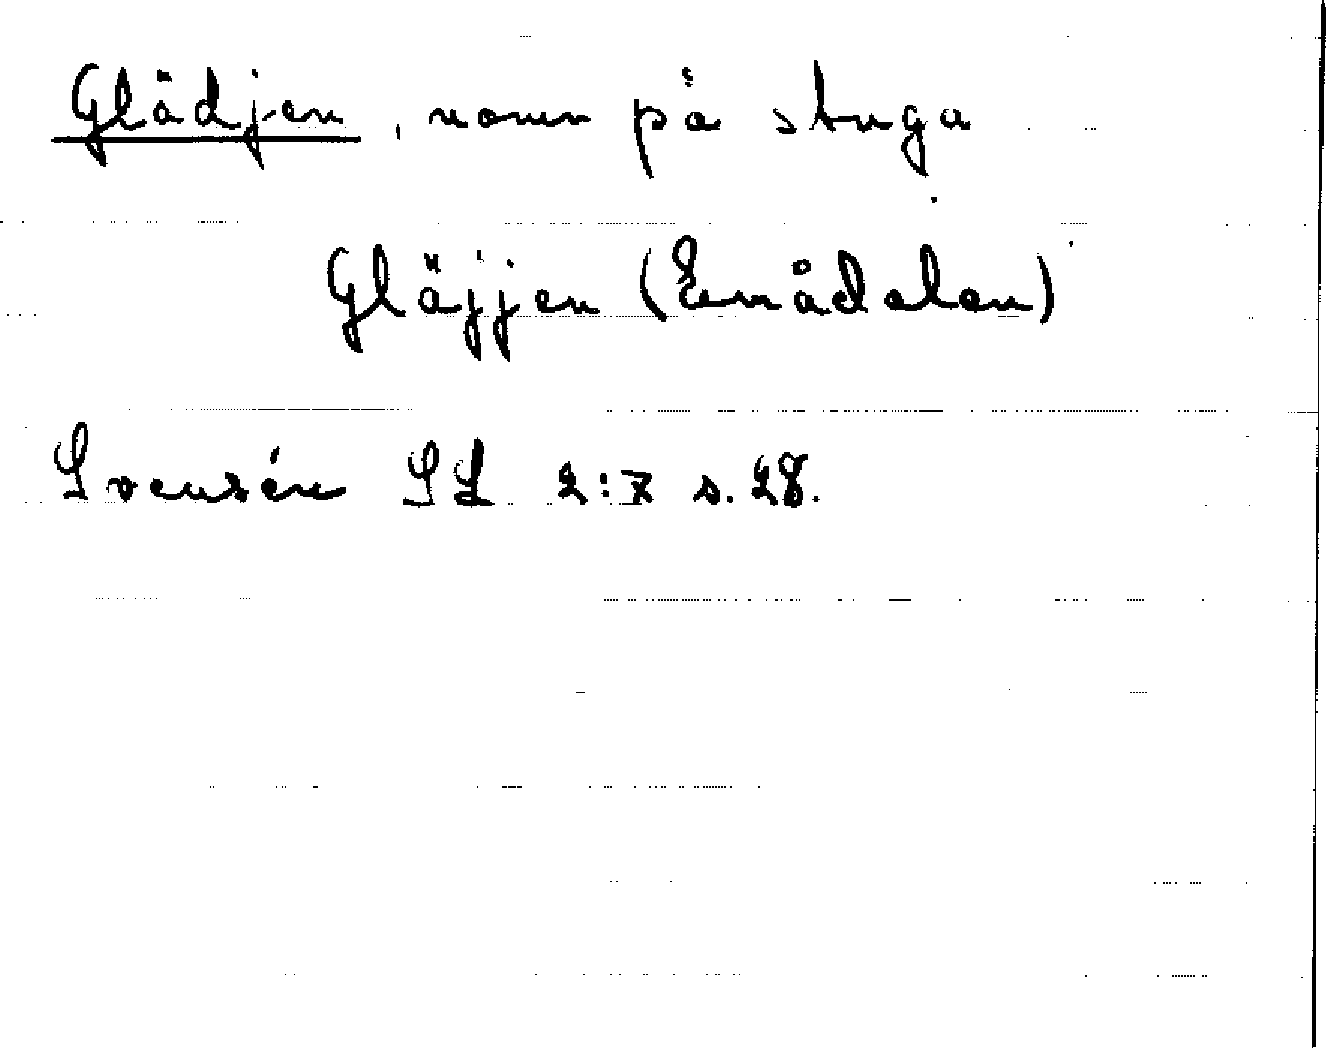 Glädjen, namn på stuga
Gläjjen (Emådalen)
Svensén SL 2:7 s. 28.